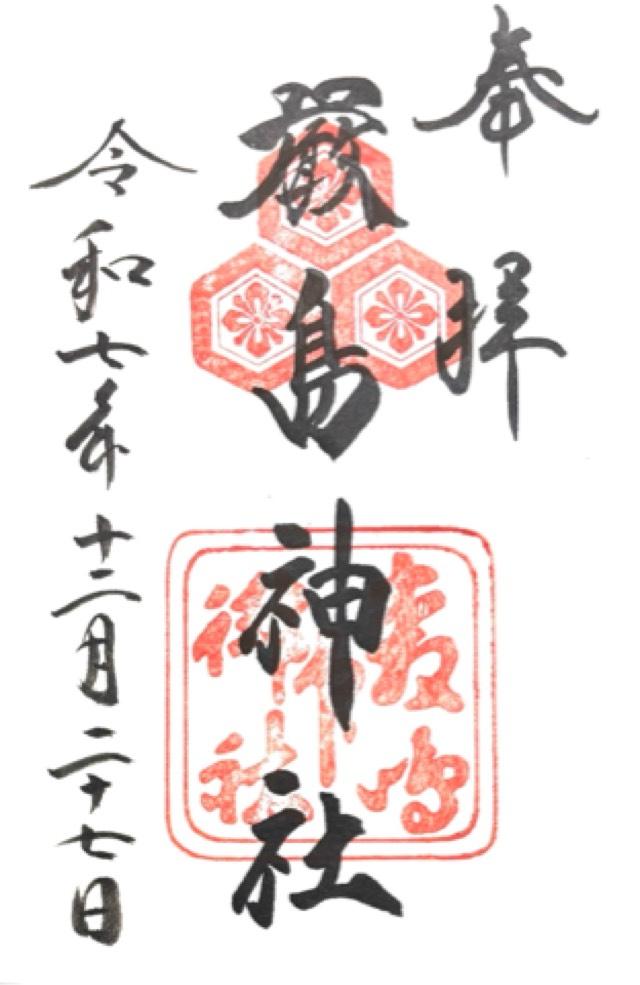 奉拝
厳島神社
令和七年十二月二十七日